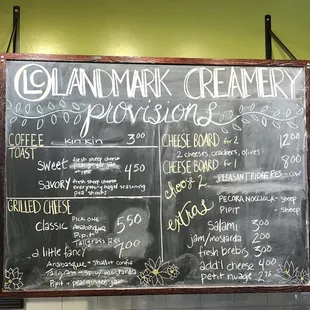 LC LANDMARK CREAMERY
provisions
COFFEE kinkin 3.00
TOAST
Sweet fresh sheep cheese
4.50
Savory fresh sheep cheese
everything bagel seasoning
pea shoots
GRILLED CHEESE
Classic PICK ONE 5.50
Anabasque
Pipit
Tallgrass Res
a little fancy 7.00
Anabasque + Shallot confit
Tallgrass + Spicy mustarda
Pipit + pear ginger jam
CHEESE BOARD for 2 12.00
2 cheeses, crackers, olives
CHEESE BOARD for 1 8.00
choose 2
PLEASANT RIDGE RES - cow
PECORA NOCCIOLA - sheep
PIPIT - sheep
extras
Salami 3.00
jam/mostarda 2.00
fresh brebis 3.00
add'l cheese 4.00
petit nuage